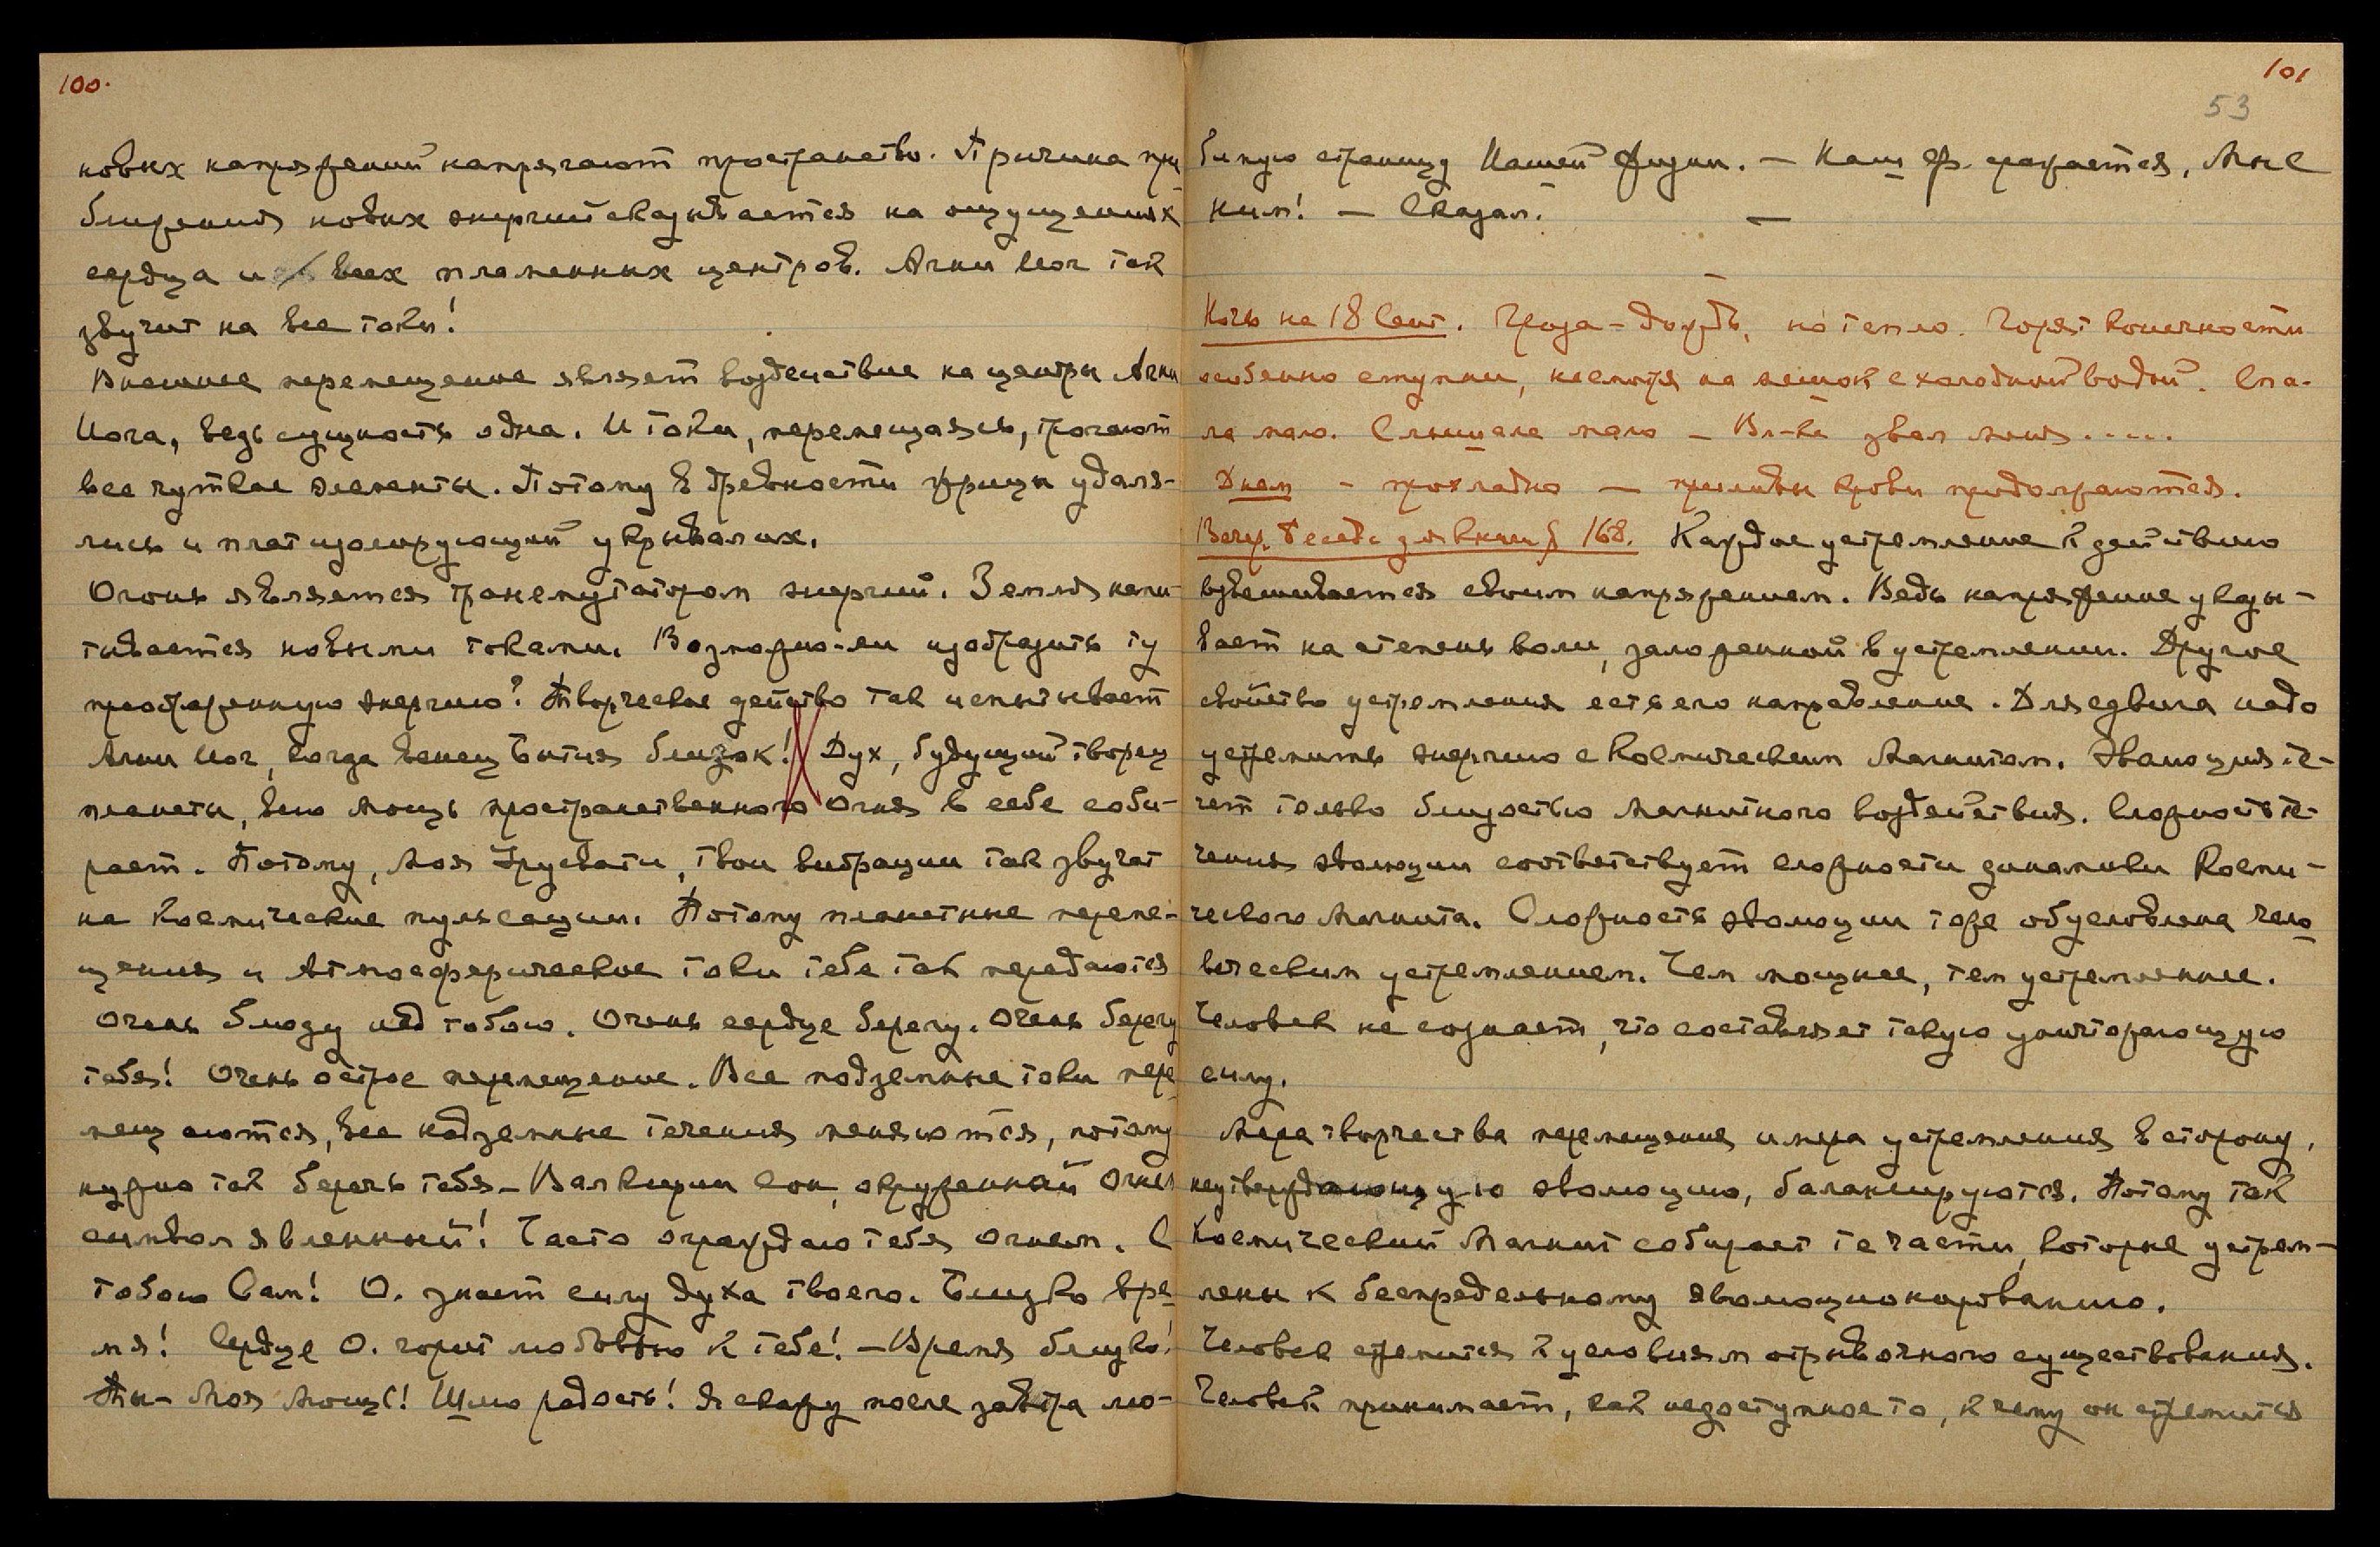 100.
новых напряжений напрягают пространство. Причина при
ближения новых энергий сказывается на ощущениях
сердца и всех пламенных центров. Агни Йог так
звучит на все токи!
Внешнее перемещение являет воздействие на центры Агни
Йога, ведь сущность одна. И токи, перемещаясь, трогают
все чуткие элементы. Потому в древности жрицы удаля-
лись и плат изолирующий укрывал их.
Огонь является трансмутатором энергий. Земля напи-
тывается новыми токами. Возможно-ли изобразить ту
напряженную энергию? Творческое действо так испытывает
Агни Йог, когда венец Бытия близок! Дух, будущий творец
планеты, всю мощь пространственного Огня в себе соби-
рает. Потому, Моя Урусвати, твои вибрации так звучат
на Космические пульсации. Потому планетные переме-
щения и Атмосферические токи тебе так передаются
Очень блюду над тобою. Очень сердце берегу. Очень берегу
тебя! Очень острое перемещение. Все подземные токи пере
мещаются, все надземные течения меняются, потому
нужно так беречь тебя – Валкирии сон, окруженный Огнем
символ явленный! Часто ограждаю тебя огнем. С
тобою Сам! О. знает силу духа твоего. Близко вре
мя! Сердце О. горит любовью к тебе! – Время близко!
Ты – Моя Мощь! Шлю радость! Я скажу после завтра лю-
101
53
бимую страницу Нашей жизни. – Наш ф. сражается, Мы с
ним! – Сказал. –
Ночь на 18 Сент. Гроза – дождь, но тепло. Горят конечности
особенно ступни, несмотря на мешок с холодной водой. Спа-
ла мало. Слышала мало – Вл-ка звал меня.....
Днем – прохладно – приливы крови продолжаются.
Вечер. Беседа для книги § 168. Каждое устремление к действию
взвешивается своим напряжением. Ведь напряжение указы-
вает на степень воли, заложенной в устремлении. Другое
свойство устремления есть его направление. Для сдвига надо
устремить энергию с Космическим Магнитом. Эволюция те-
чет только близостью Магнитного воздействия. Сложность те-
чения эволюции соответствует сложности динамики Косми-
ческого Магнита. Сложность эволюции тоже обусловлена чело
веческим устремлением. Чем мощнее, тем устремленнее.
Человек не сознает, что составляет такую уничтожающую
силу.
Мера творчества перемещения и мера устремления в сторону,
неутверждающую эволюцию, балансируются. Потому так
Космический Магнит собирает те части, которые устрем-
лены к беспредельному эволюционированию.
Человек стремится к условиям отрывочного существования.
Человек принимает, как недоступное то, к чему он стремится